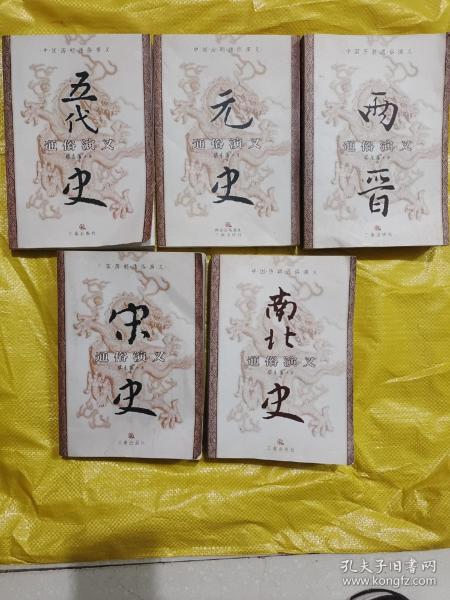 中国历朝通俗演义
五代
通俗演义
史
三秦出版社
中国历朝通俗演义
元
通俗演义
史
中国历朝通俗演义
两
通俗演义
晋
中国历朝通俗演义
宋
通俗演义
史
三秦出版社
中国历朝通俗演义
南北
通俗演义
史
三秦出版社
孔夫子旧书网
www.kongfz.com